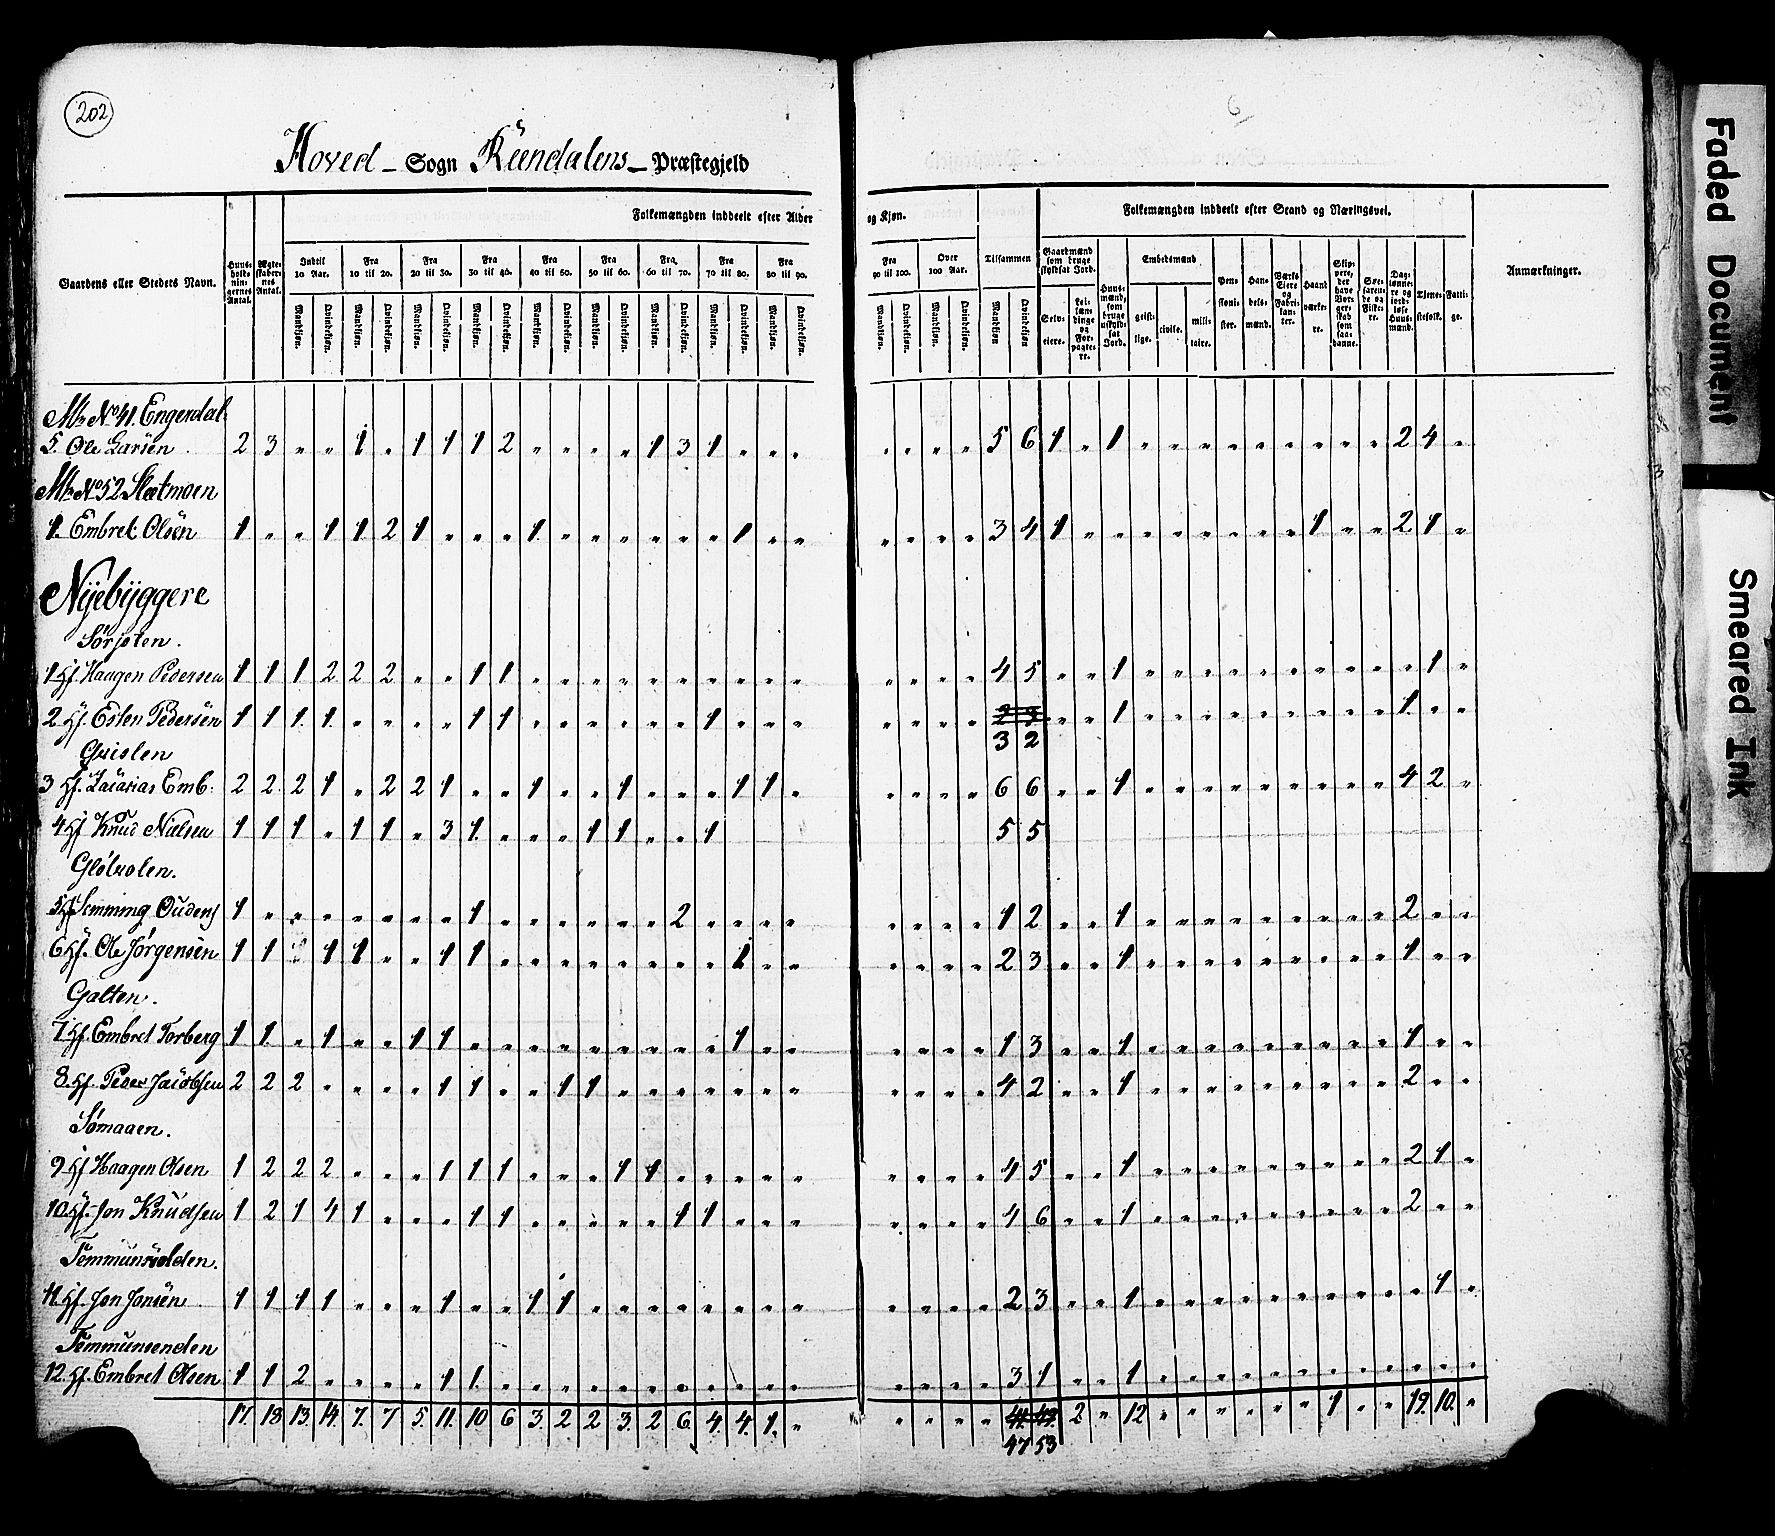 202
6
Hoved – Sogn Reendalens – Præstegjeld
Gaardens eller Stedets Navn.
Huusholdningernes Antal.
Ægteskabernes Antal.
Folkemængden inddeelt efter Alder og Kjøn.
Indtil 10 Aar. Fra 10 til 20. Fra 20 til 30. Fra 30 til 40. Fra 40 til 50. Fra 50 til 60. Fra 60 til 70. Fra 70 til 80. Fra 80 til 90. Fra 90 til 100. Over 100 Aar. Tilsammen
Mandkjøn. Qvindekjøn.
Folkemængden inddeelt efter Stand og Næringsvei.
Gaardmænd som bruge skyldsat Jord. Selveiere. Leilændinge og Forpagtere.
Huusmænd, som bruge uskyldsat Jord.
Embedsmænd geistlige. civile. militaire.
Pensionister. Handelsmænd. Værks-Eiere og Fabrikanter. Haandværkere.
Skippere, der have Borgerskab som saadanne.
Søefarende og Fiskere.
Daglønnere og jordløse Huusmænd.
Tjenestefolk. Fattige.
Anmærkninger.
Mk No 41. Engerdal
5. Ole Larsen . 2 3 „ „ 1 „ 1 1 1 2 „ „ „ „ 1 3 1 „ „ „ „ „ „ „ 5 6 1 „ 1 „ „ „ „ „ „ „ „ „ 2 4 „
Mk No 52 Sletmoen
1. Embret Olsen 1 „ „ 1 1 2 1 „ „ „ 1 „ „ „ „ „ „ 1 „ „ „ „ „ „ 3 4 1 „ „ „ „ „ „ „ „ 1 „ „ 2 1 „
Nyebyggere
Sørjoten.
1 Hf. Haagen Pedersen 1 1 1 2 2 2 „ „ 1 1 „ „ „ „ „ „ „ „ „ „ „ „ „ „ 4 5 „ „ 1 „ „ „ „ „ „ „ „ „ „ 1 „
2. Hf. Esten Pedersen 1 1 1 1 „ „ „ „ 1 1 „ „ „ „ „ „ 1 „ „ „ „ „ „ „ „ „ 1 „ „ „ „ „ „ „ „ „ 1 „ „
3 2
3 Hf. Zacarias Emb. 2 2 2 1 „ 2 2 1 „ „ 1 „ „ 1 „ „ „ 1 1 „ „ „ „ „ 6 6 „ „ 1 „ „ „ „ „ „ „ „ „ 4 2 „
4 Hf Knud Nielsen 1 1 1 „ 1 1 „ 3 1 „ „ „ 1 1 „ „ 1 5 5
5 Hf Semming Oudens 1 „ „ „ „ „ „ „ 1 „ „ „ „ „ „ 2 „ „ „ „ „ „ „ „ 1 2 „ „ 1 „ „ „ „ „ „ „ „ „ 2 „ „
6 Hf. Ole Jørgensen 1 1 „ 1 1 „ „ 1 1 „ „ „ „ „ „ „ „ 1 „ „ „ „ „ „ 2 3 „ „ 1 „ „ „ „ „ „ „ „ „ 1 „ „
Galten.
7 Hf. Embret Torberg 1 1 „ 1 „ „ 1 1 „ „ „ „ „ „ „ „ „ 1 „ „ „ „ „ „ 1 3 „ „ 1 „ „ „ „ „ „ „ „ „ 1 „ „
8. Hf. Peder Jacobsen 2 2 2 „ „ „ „ 1 1 „ „ 1 1 „ „ „ „ „ „ „ „ „ „ „ 4 2 „ „ 1 „ „ „ „ „ „ „ „ „ 2 „ „
Sømaaen.
9 Hf Haagen Olsen 1 2 2 2 „ „ „ 1 1 1 „ „ „ 1 1 „ „ „ „ „ „ „ „ „ 4 5 „ „ 1 „ „ „ „ „ „ „ „ „ 2 1 „
10. Hf. Jon Knudsen 1 2 1 4 1 „ „ „ 1 1 „ „ „ „ „ 1 1 „ „ „ „ „ „ „ 4 6 „ „ 1 „ „ „ „ „ „ „ „ „ 2 „ „
11. Hf. Jon Jonsen 1 1 1 1 „ „ „ 1 „ „ 1 1 „ „ „ „ „ „ „ „ „ „ „ „ 2 3 „ „ 1 „ „ „ „ „ „ „ „ „ „ 1 „
Femmunsenden
12. Hf. Embret Olsen 1 1 2 „ „ „ „ 1 1 „ „ „ „ „ „ „ „ „ „ „ „ „ „ „ 3 1 „ „ 1 „ „ „ „ „ „ „ „ „ „ „ „
17. 18 13. 14. 7. 7 5. 11. 10 6 3. 2 2 3. 2 6. 4. 4. 1. „ „ „ „ „ 2 „ 12 „ „ „ „ „ „ 1 „ „ 19. 10. „
47 53
Faded Document
Smeared Ink